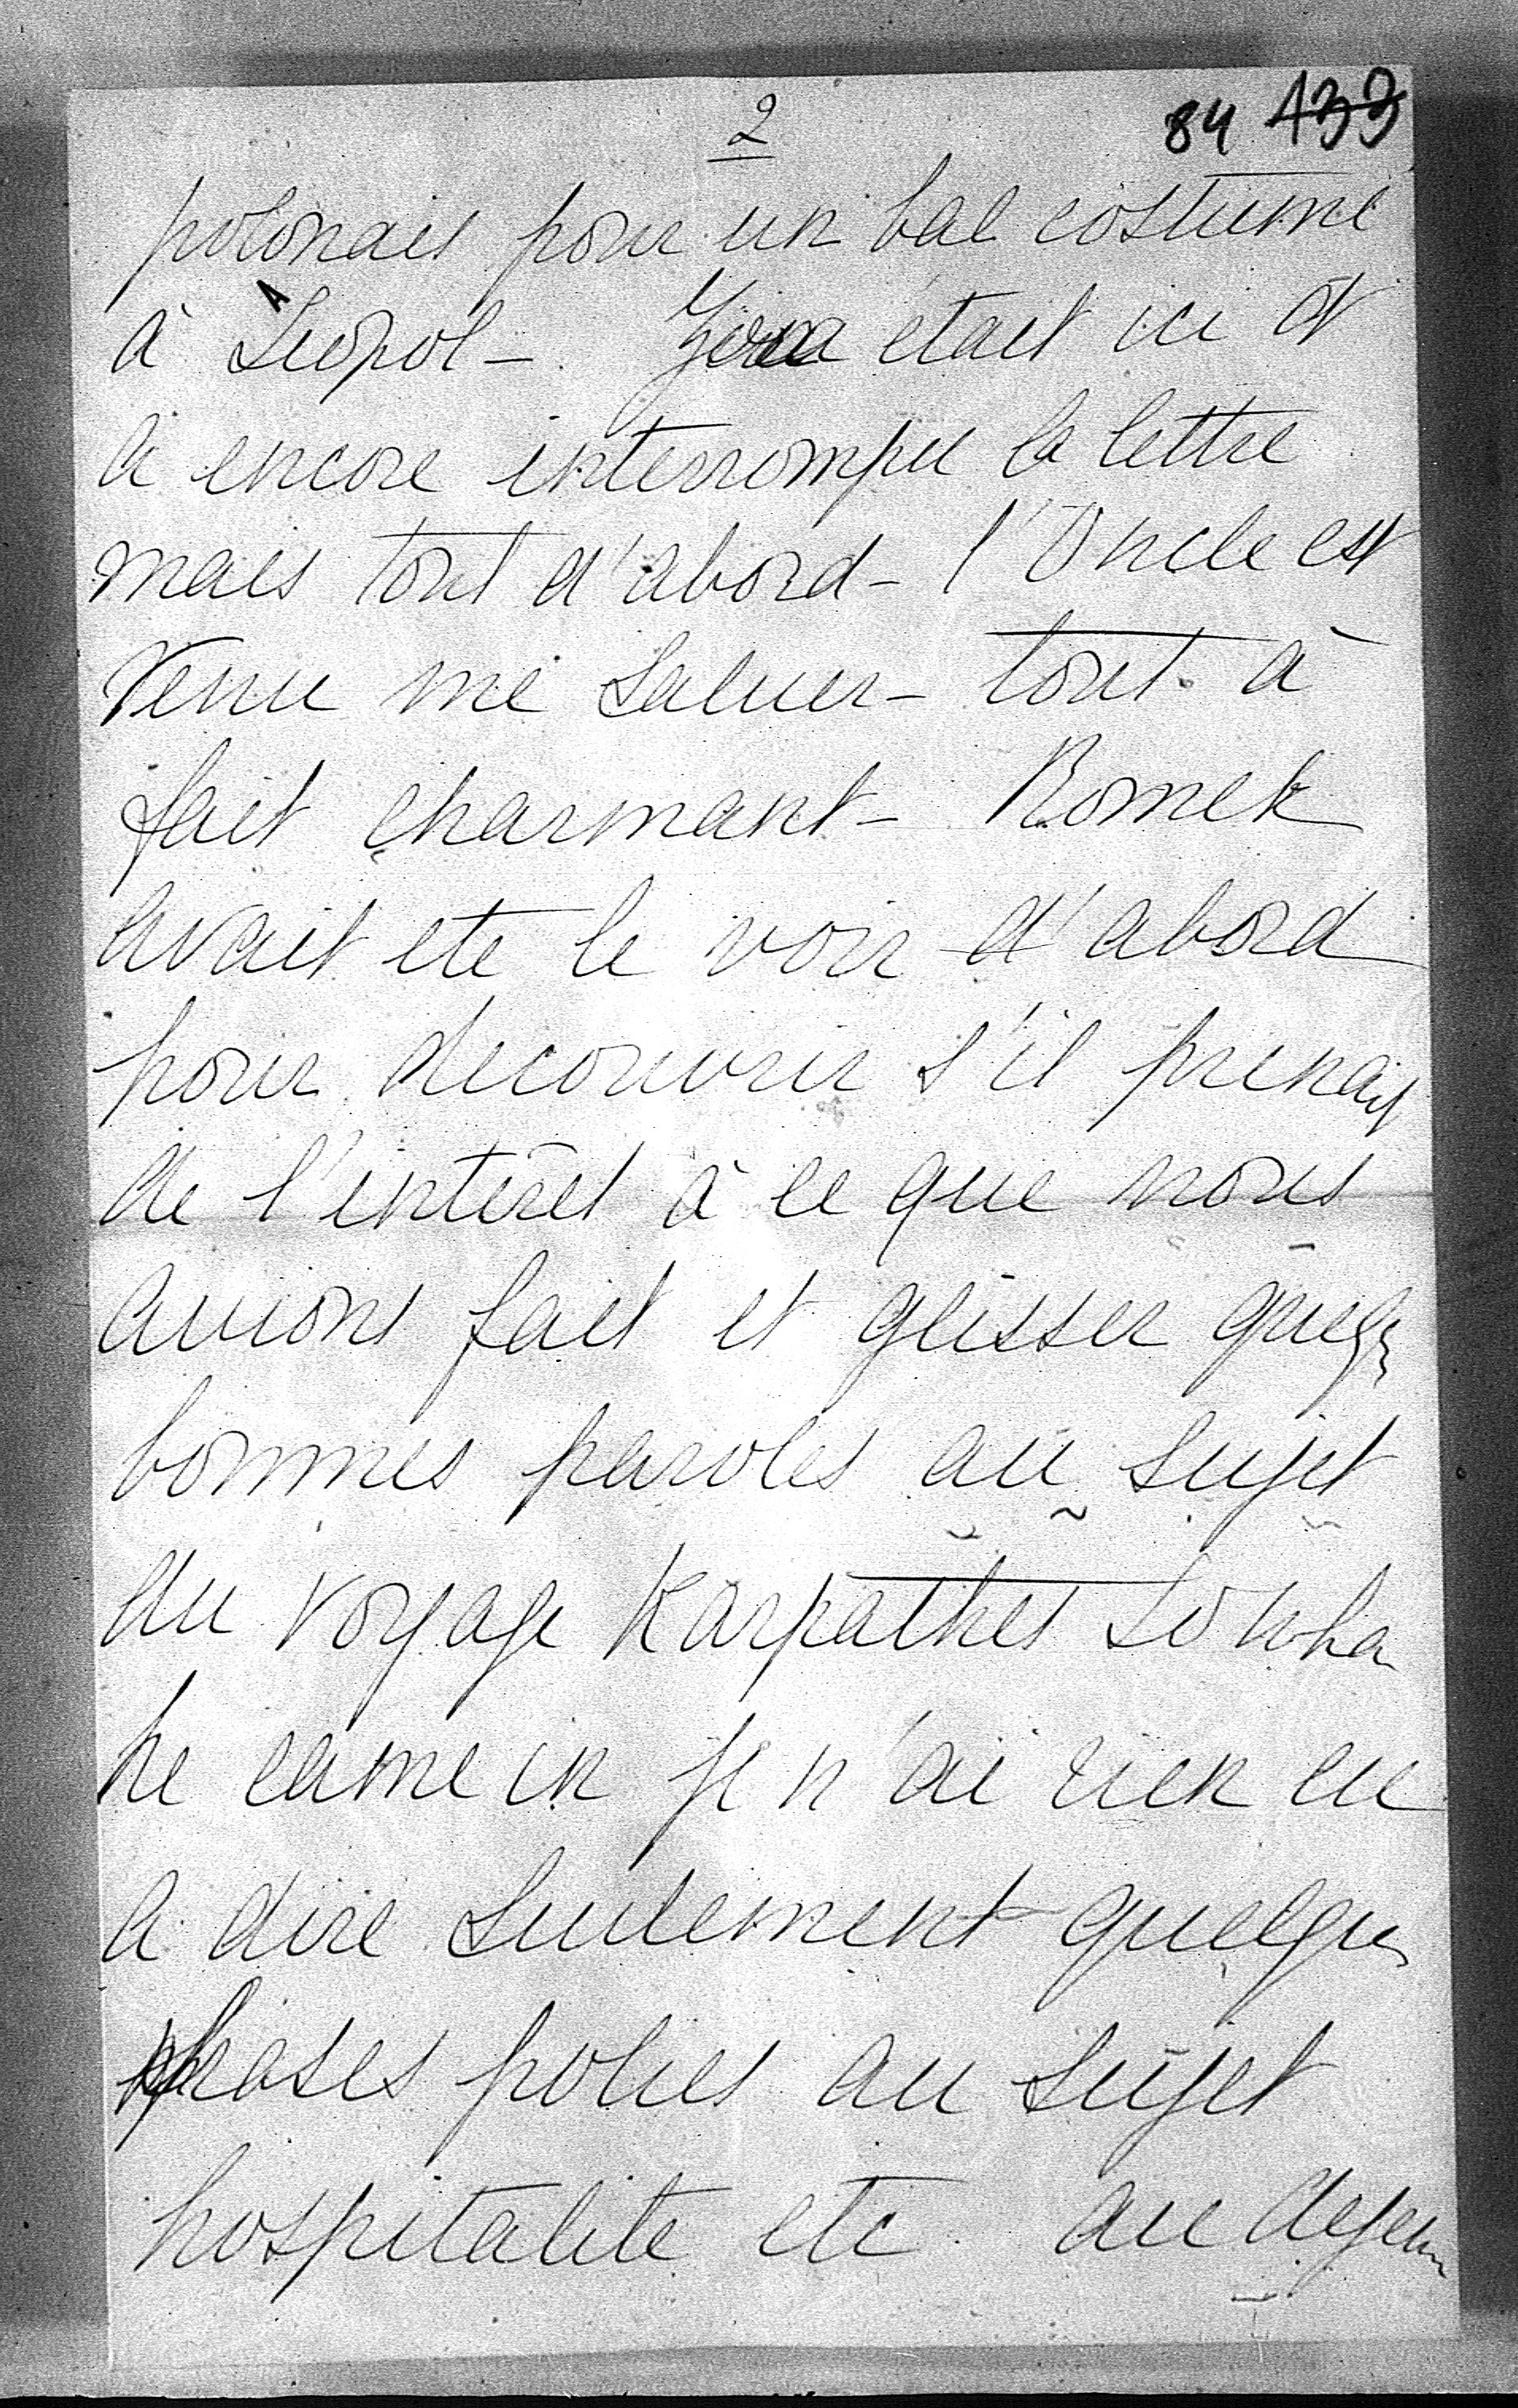 2
84 133
polonais pour un bal costume
à Leopol - était ici et
a encore interrompu la lettre
mais tout d'abord - l'Oncle est
Venu me saluer - tout à
fait charmant - Romek
avait ete le voir d'abord
pour decouvrir s'il prenait
de l'intérêt à ce que nous
avions fait et glisser quelq
bonnes paroles au sujet
du voyage Karpathes so wha
he came in je n'ai rien eu
a dire seulement quelques
phrases polies au sujet
hospitalite etc. au dejeun